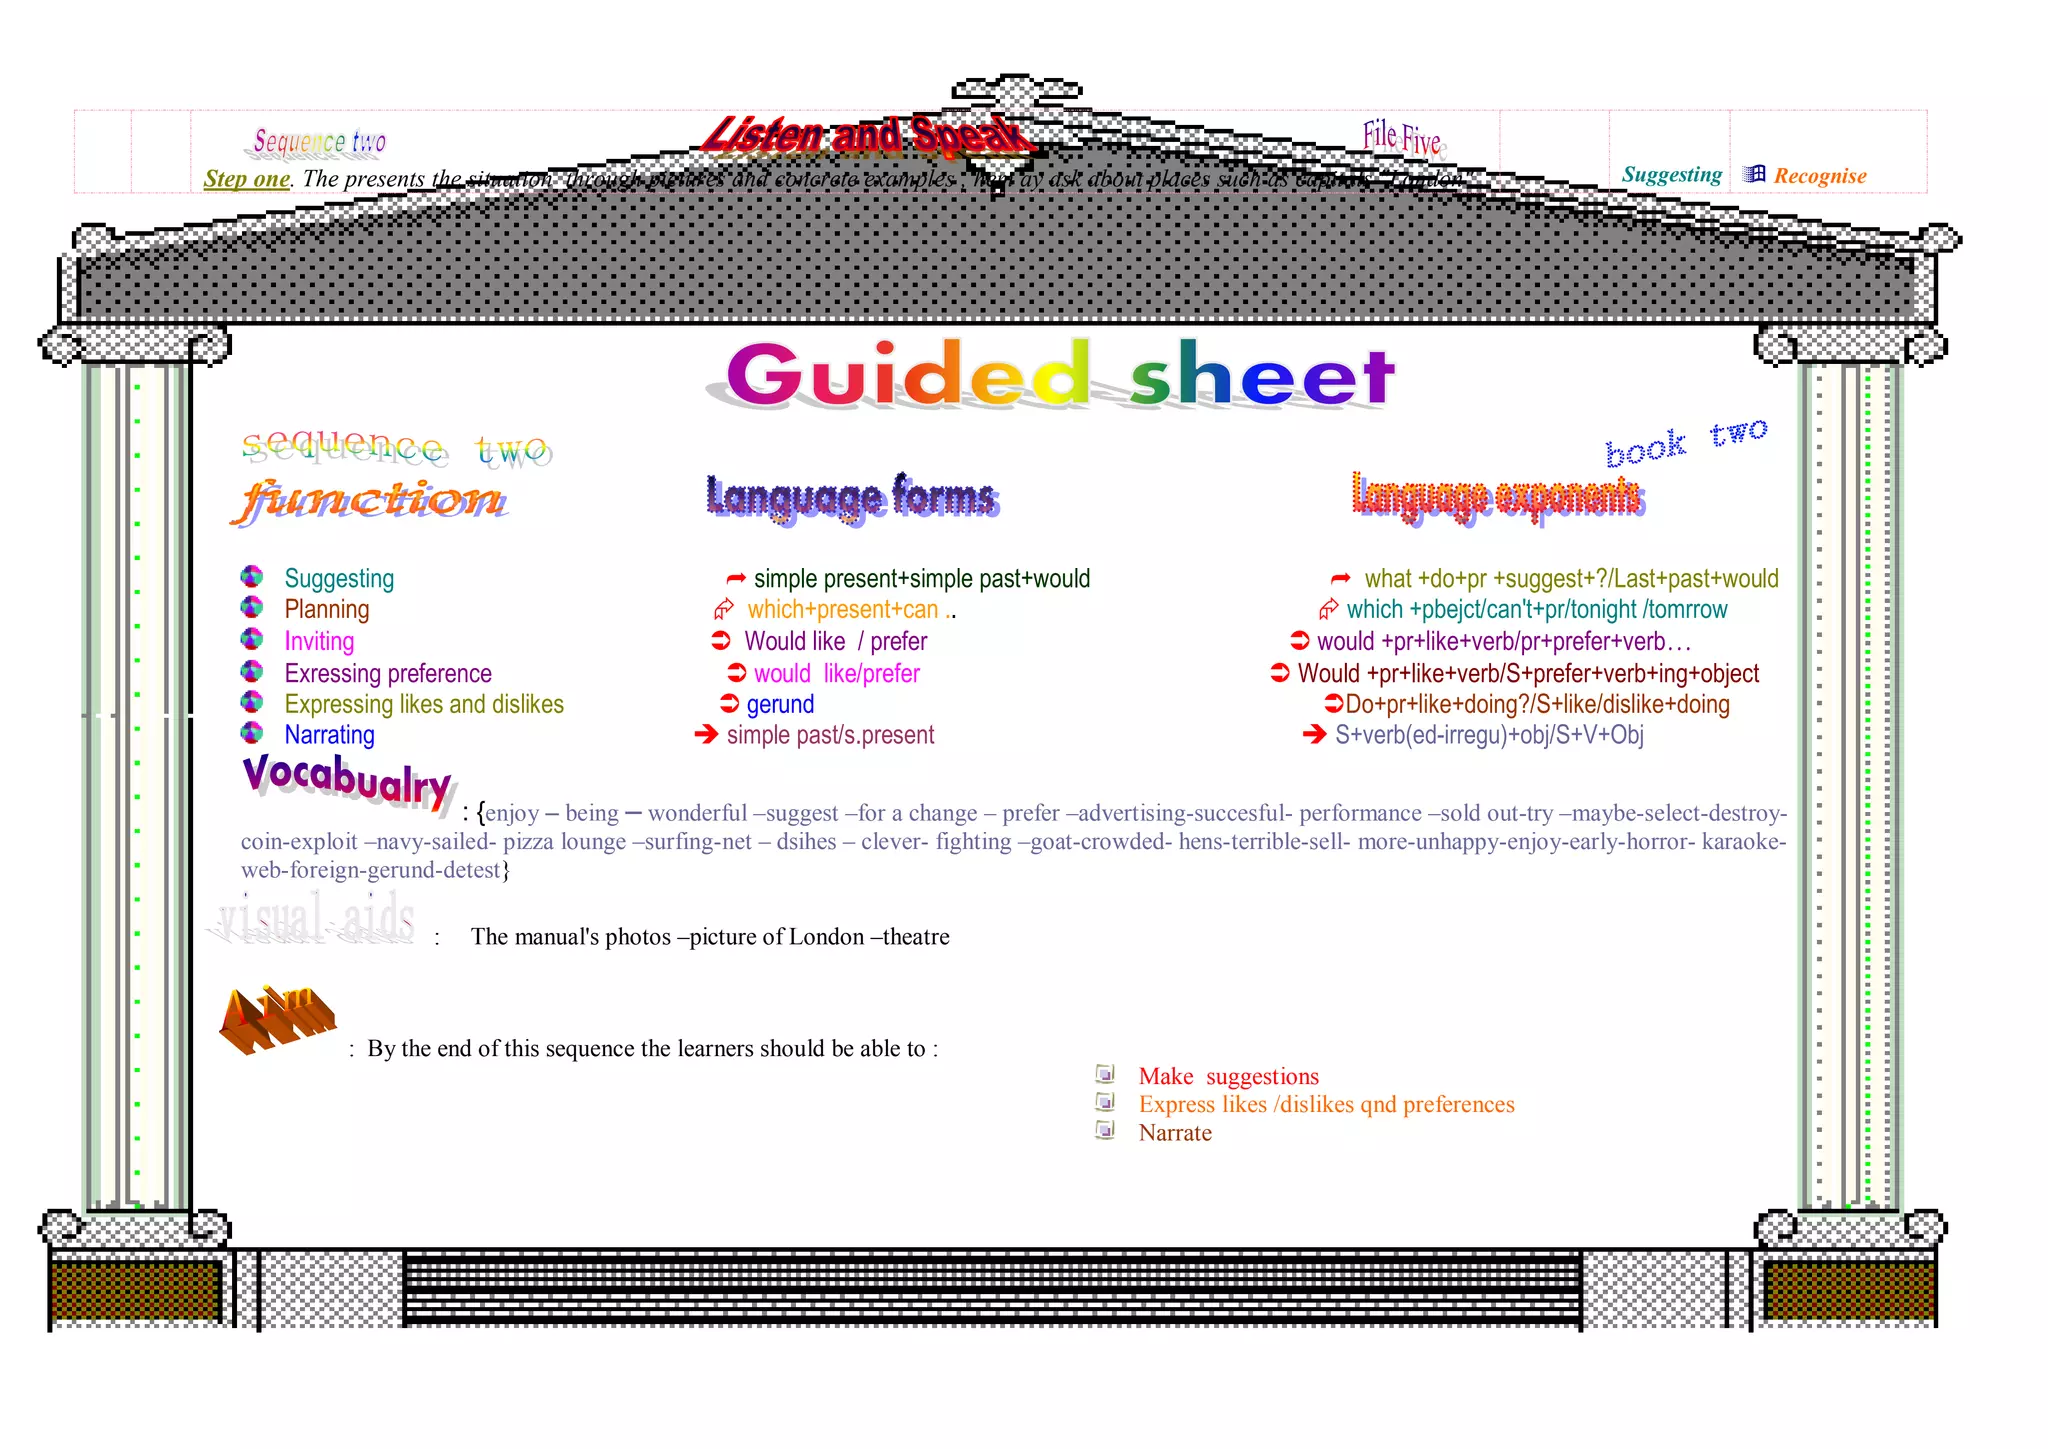 Sequence two Listen and Speak File Five
Step one. The presents the situation through pictures and concrete examples , ay ask about places such as capitals "London" Suggesting Recognise
Guided sheet
sequence two book two
function Language forms Language exponents
Suggesting simple present+simple past+would what +do+pr +suggest+?/Last+past+would
Planning which+present+can .. which +pbejct/can't+pr/tonight /tomrrow
Inviting Would like / prefer would +pr+like+verb/pr+prefer+verb…
Exressing preference would like/prefer Would +pr+like+verb/S+prefer+verb+ing+object
Expressing likes and dislikes gerund Do+pr+like+doing?/S+like/dislike+doing
Narrating simple past/s.present S+verb(ed-irregu)+obj/S+V+Obj
Vocabualry : {enjoy – being – wonderful –suggest –for a change – prefer –advertising-succesful- performance –sold out-try –maybe-select-destroy-
coin-exploit –navy-sailed- pizza lounge –surfing-net – dsihes – clever- fighting –goat-crowded- hens-terrible-sell- more-unhappy-enjoy-early-horror- karaoke-
web-foreign-gerund-detest}
visual aids : The manual's photos –picture of London –theatre
Aim : By the end of this sequence the learners should be able to :
Make suggestions
Express likes /dislikes qnd preferences
Narrate